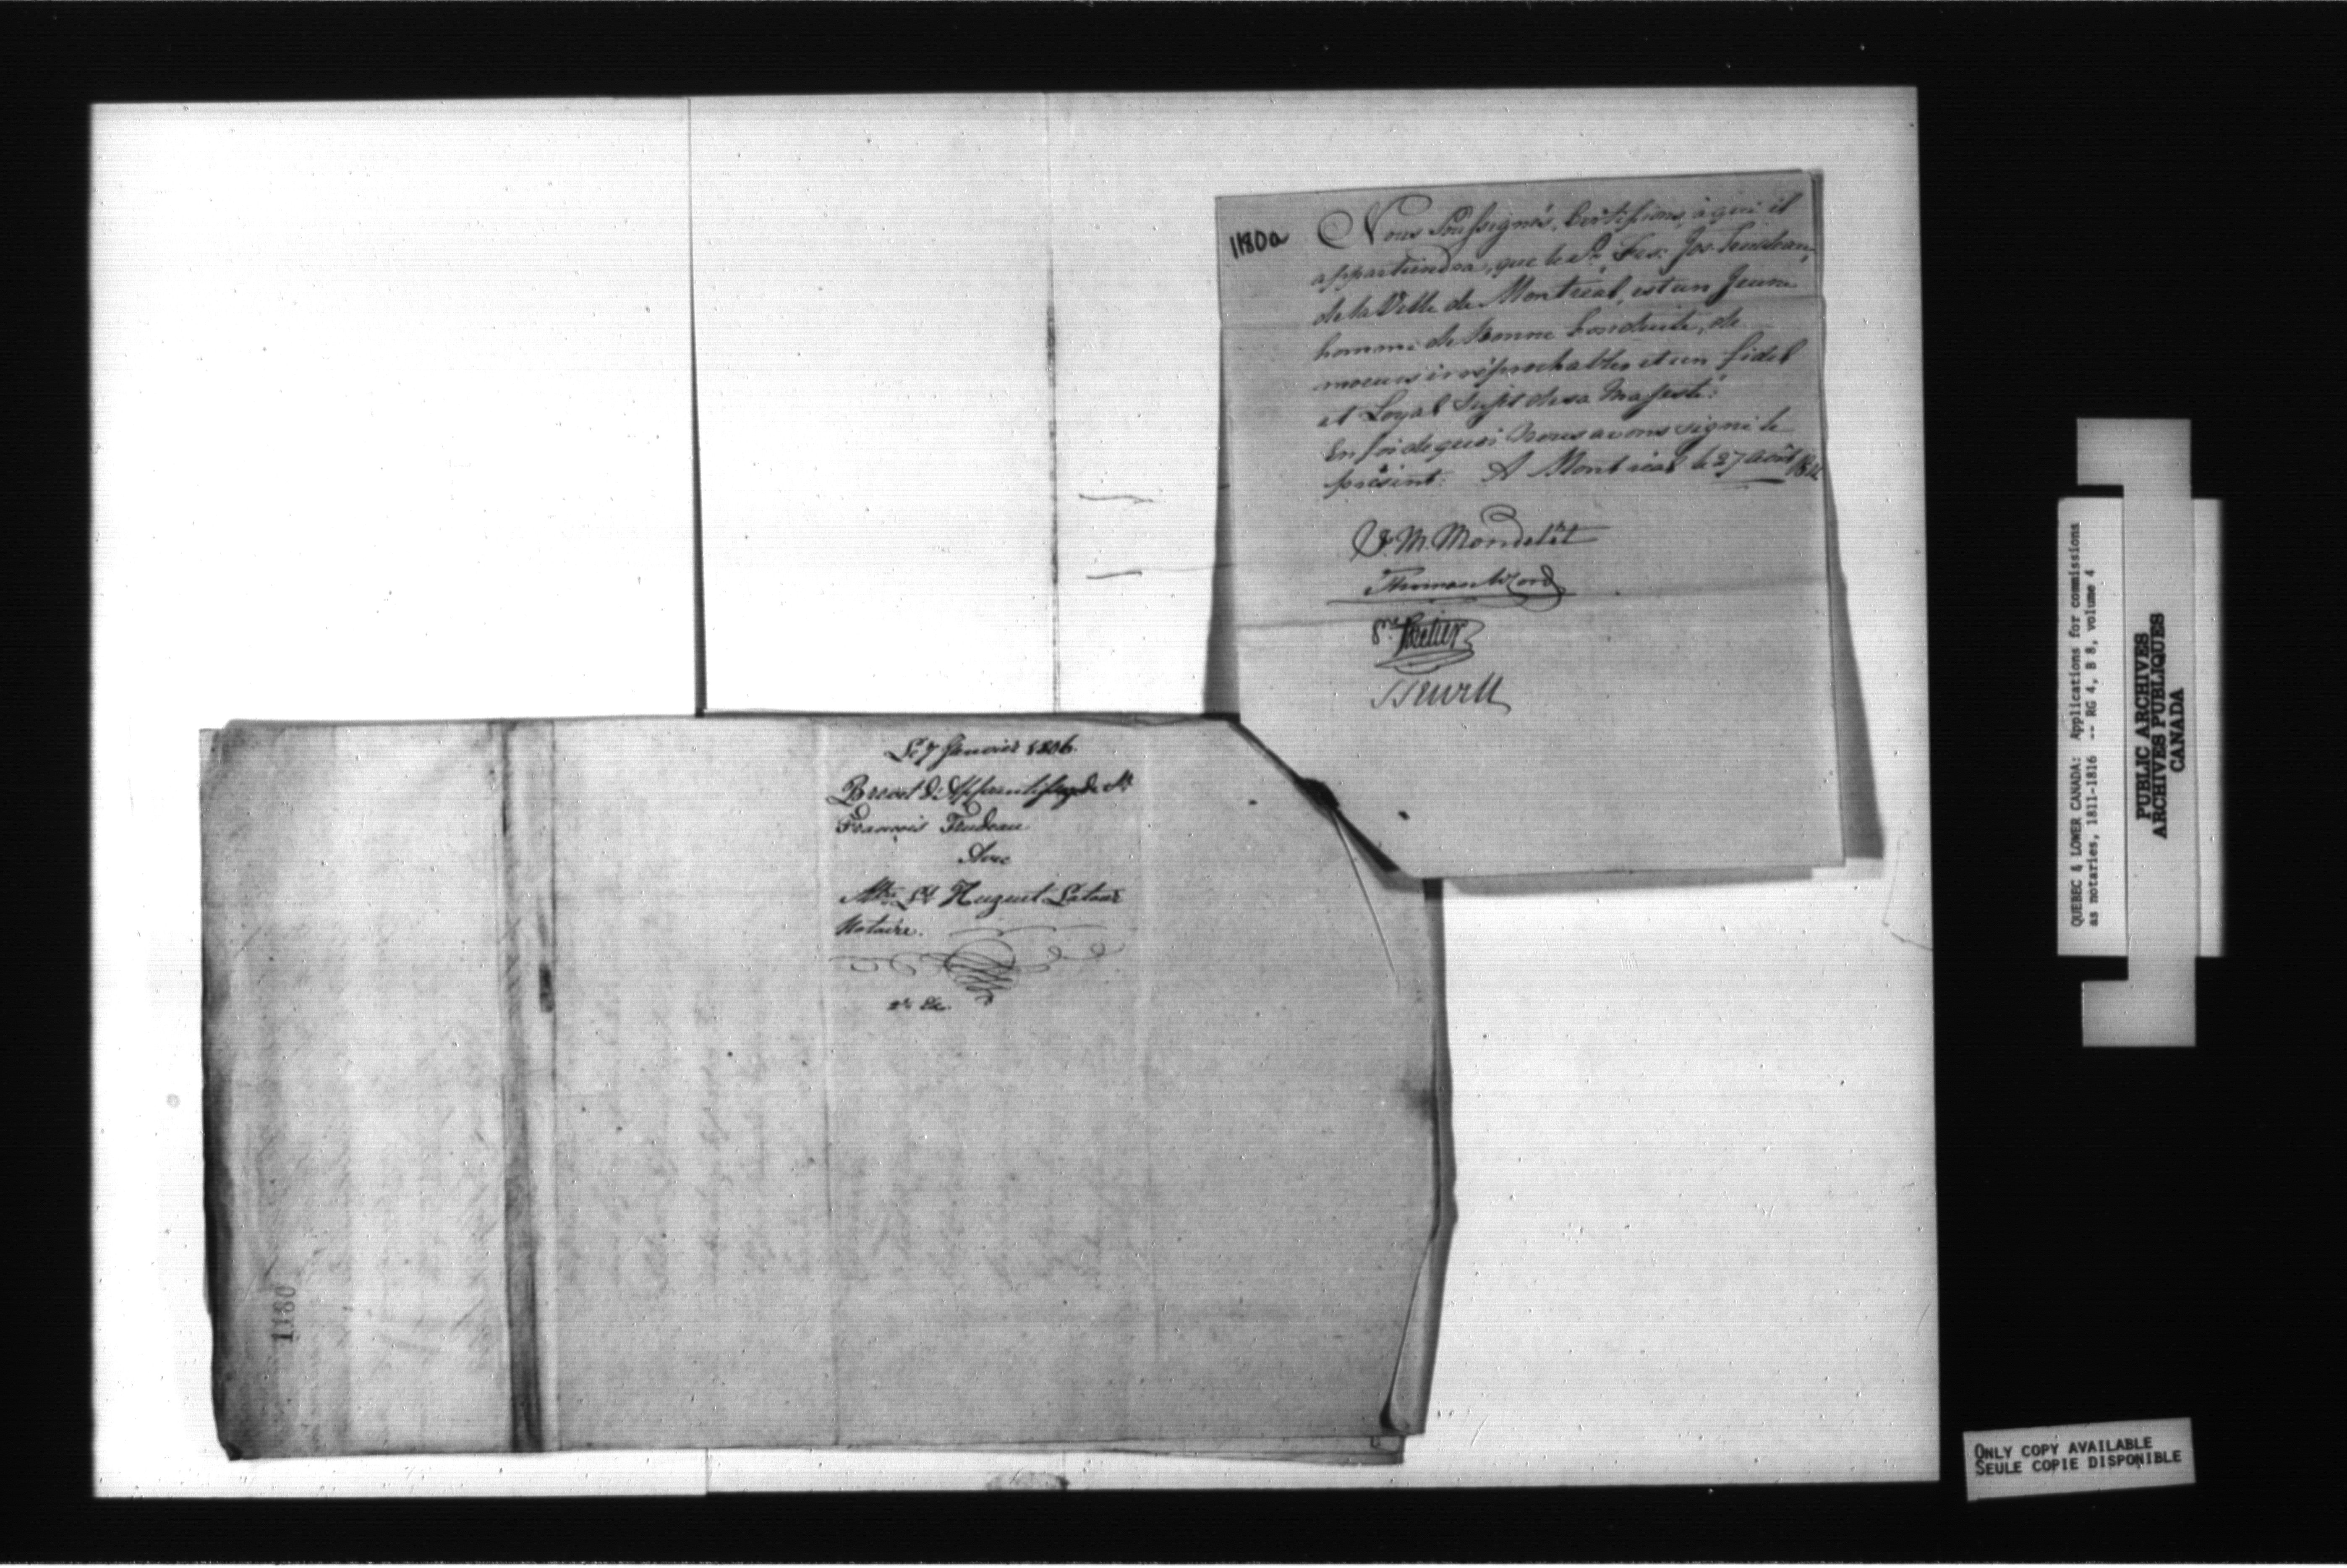 1180a
Nous Soussignés, Certifions, à qui il
appartiendra, que le Sr. Frs. Jos. Trudeau,
de la Ville de Montréal, est un Jeune
homme de bonne Conduite, de
moeurs irréprochables et un fidel
et Loyal Sujet de sa Majesté:
En foi de quoi Nous avons signé le
présent. A Montréal le 27 août
J. M. Mondelet
Thomas McCord
Le 7 Janvier 1806.
Brevet d'Apprentissage de Sr
François Trudeau
Avec
Mtre Ls Huguet Latour
Notaire.
1180
QUEBEC & LOWER CANADA: Applications for commissions
as notaries, 1811-1816 -- RG 4, B 8, volume 4
PUBLIC ARCHIVES
ARCHIVES PUBLIQUES
CANADA
ONLY COPY AVAILABLE
SEULE COPIE DISPONIBLE